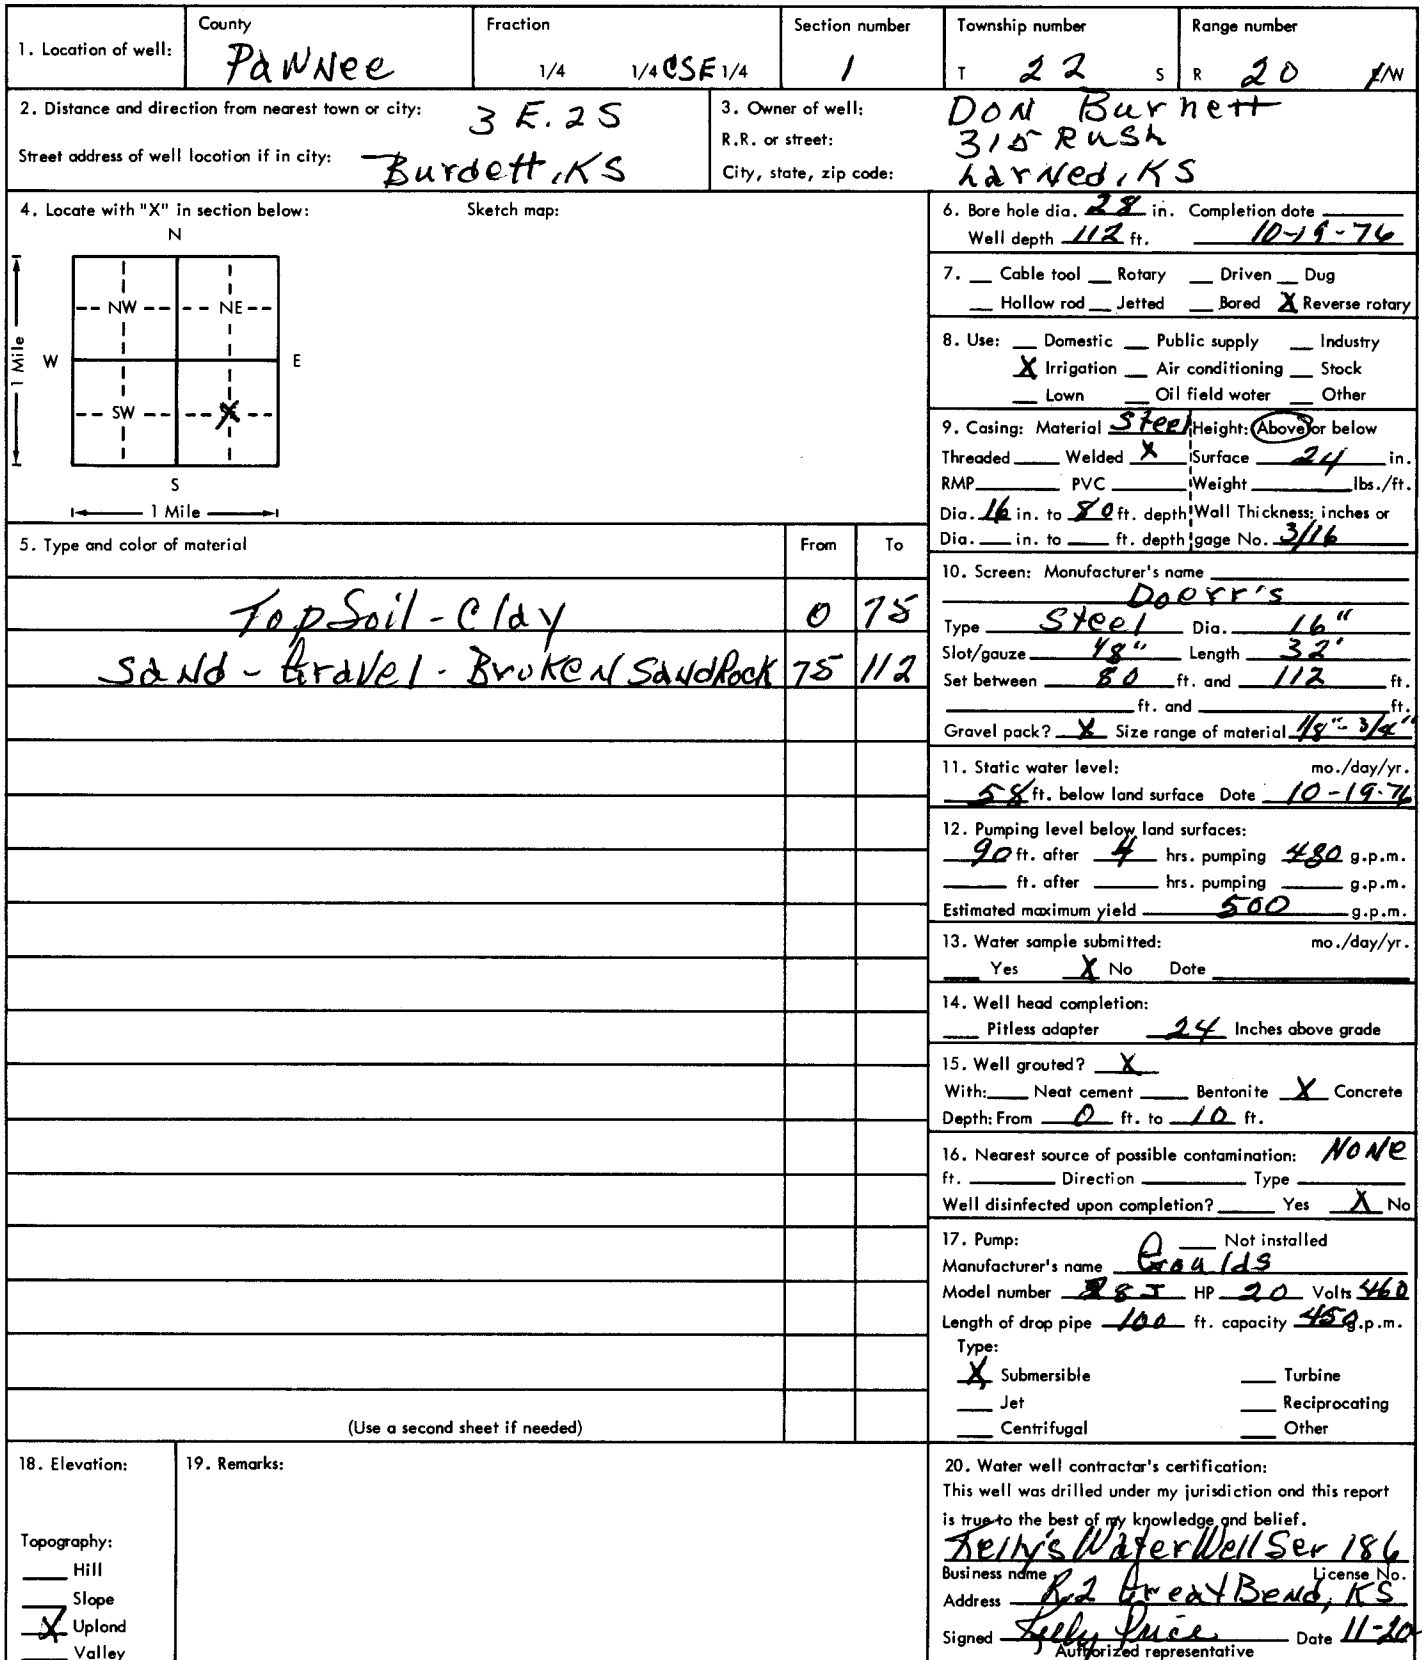 1. Location of well: County Pawnee Fraction 1/4 1/4 CSE 1/4 Section number 1 Township number T 22 S Range number R 20 E/W
2. Distance and direction from nearest town or city: 3 E. 2 S
Street address of well location if in city: Burdett, KS
3. Owner of well: Don Burnett
R.R. or street: 315 Rush
City, state, zip code: Larned, KS
4. Locate with "X" in section below: Sketch map:
N
NW NE
W E
1 Mile
SW X
S
1 Mile
5. Type and color of material From To
Top Soil - Clay 0 75
Sand - Gravel - Broken SandRock 75 112
(Use a second sheet if needed)
6. Bore hole dia. 28 in. Completion date
Well depth 112 ft. 10-19-76
7. Cable tool Rotary Driven Dug
Hollow rod Jetted Bored X Reverse rotary
8. Use: Domestic Public supply Industry
X Irrigation Air conditioning Stock
Lawn Oil field water Other
9. Casing: Material Steel Height: Above or below
Threaded Welded X Surface 24 in.
RMP PVC Weight lbs./ft.
Dia. 16 in. to 80 ft. depth Wall Thickness: inches or
Dia. in. to ft. depth gage No. 3/16
10. Screen: Manufacturer's name
Doerr's
Type Steel Dia. 16"
Slot/gauze 1/8" Length 32'
Set between 80 ft. and 112 ft.
ft. and ft.
Gravel pack? X Size range of material 1/8"- 3/4"
11. Static water level: mo./day/yr.
58 ft. below land surface Date 10-19-76
12. Pumping level below land surfaces:
90 ft. after 4 hrs. pumping 480 g.p.m.
ft. after hrs. pumping g.p.m.
Estimated maximum yield 500 g.p.m.
13. Water sample submitted: mo./day/yr.
Yes X No Date
14. Well head completion:
Pitless adapter 24 Inches above grade
15. Well grouted? X
With: Neat cement Bentonite X Concrete
Depth: From 0 ft. to 10 ft.
16. Nearest source of possible contamination: None
ft. Direction Type
Well disinfected upon completion? Yes X No
17. Pump: Not installed
Manufacturer's name Goulds
Model number 8J HP 20 Volts 460
Length of drop pipe 100 ft. capacity 450 g.p.m.
Type:
X Submersible Turbine
Jet Reciprocating
Centrifugal Other
18. Elevation:
Topography:
Hill
Slope
X Upland
Valley
19. Remarks:
20. Water well contractor's certification:
This well was drilled under my jurisdiction and this report
is true to the best of my knowledge and belief.
Kelly's Water Well Ser 186
Business name License No.
Address R.2 Great Bend, KS
Signed Kelly Price Date 11-20
Authorized representative